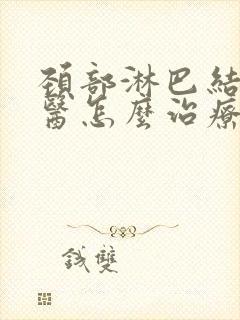 頚部淋巴結
醫怎麼治療
錢雙